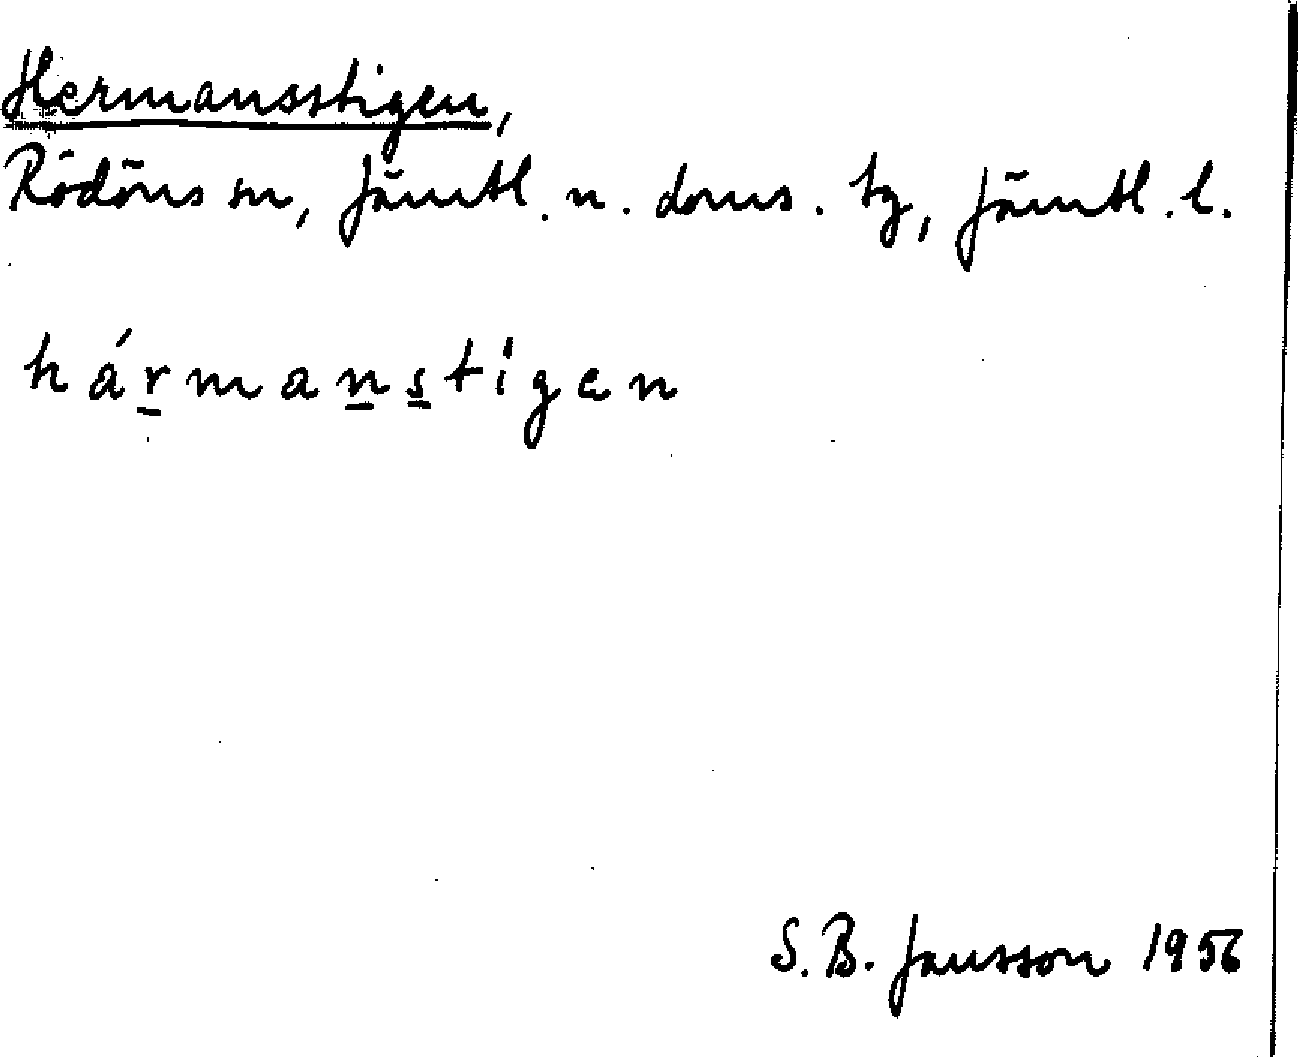 Hermansstigen,
Rödöns sn, Jämtl. n. doms. tg, Jämtl. l.
hármanstigen
S. B. Jansson 1956